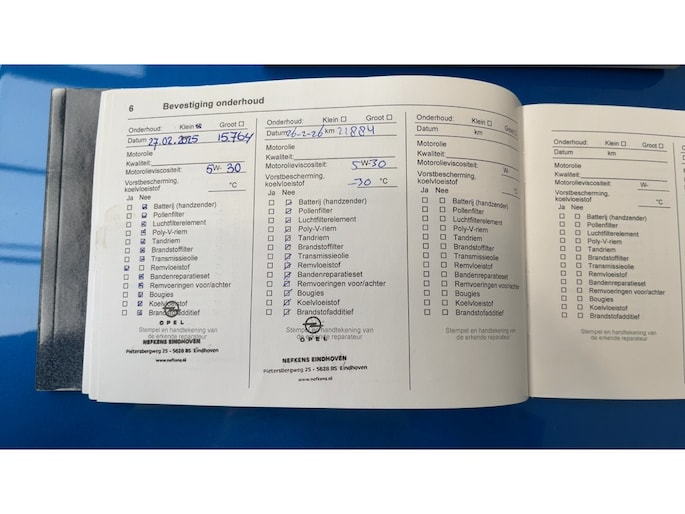 6 Bevestiging onderhoud
Onderhoud: Klein Groot
Datum 27.02.2025 15.764
Motorolie
Kwaliteit:
Motorolieviscositeit: 5W-30
Vorstbescherming, °C
koelvloeistof
Ja Nee
Batterij (handzender)
Pollenfilter
Luchtfilterelement
Poly-V-riem
Tandriem
Brandstoffilter
Transmissieolie
Remvloeistof
Bandenreparatieset
Remvoeringen voor/achter
Bougies
Koelvloeistof
Brandstofadditief
OPEL
Stempel en handtekening van
de erkende reparateur
NEFKENS EINDHOVEN
Pietersbergweg 25 - 5628 BS Eindhoven
www.nefkens.nl
Onderhoud: Klein Groot
Datum 26-2-26 km 21884
Motorolie
Kwaliteit:
Motorolieviscositeit: 5W-30
Vorstbescherming,
koelvloeistof -30 °C
Ja Nee
Batterij (handzender)
Pollenfilter
Luchtfilterelement
Poly-V-riem
Tandriem
Brandstoffilter
Transmissieolie
Remvloeistof
Bandenreparatieset
Remvoeringen voor/achter
Bougies
Koelvloeistof
Brandstofadditief
OPEL
Stempel en handtekening van
de erkende reparateur
NEFKENS EINDHOVEN
Pietersbergweg 25 - 5628 BS Eindhoven
www.nefkens.nl
Onderhoud: Klein Groot
Datum km
Motorolie
Kwaliteit:
Motorolieviscositeit: W-
Vorstbescherming,
koelvloeistof °C
Ja Nee
Batterij (handzender)
Pollenfilter
Luchtfilterelement
Poly-V-riem
Tandriem
Brandstoffilter
Transmissieolie
Remvloeistof
Bandenreparatieset
Remvoeringen voor/achter
Bougies
Koelvloeistof
Brandstofadditief
Stempel en handtekening van
de erkende reparateur
Onderhoud: Klein Groot
Datum km
Motorolie
Kwaliteit:
Motorolieviscositeit: W-
Vorstbescherming,
koelvloeistof °C
Ja Nee
Batterij (handzender)
Pollenfilter
Luchtfilterelement
Poly-V-riem
Tandriem
Brandstoffilter
Transmissieolie
Remvloeistof
Bandenreparatieset
Remvoeringen voor/achter
Bougies
Koelvloeistof
Brandstofadditief
Stempel en handtekening van
de erkende reparateur